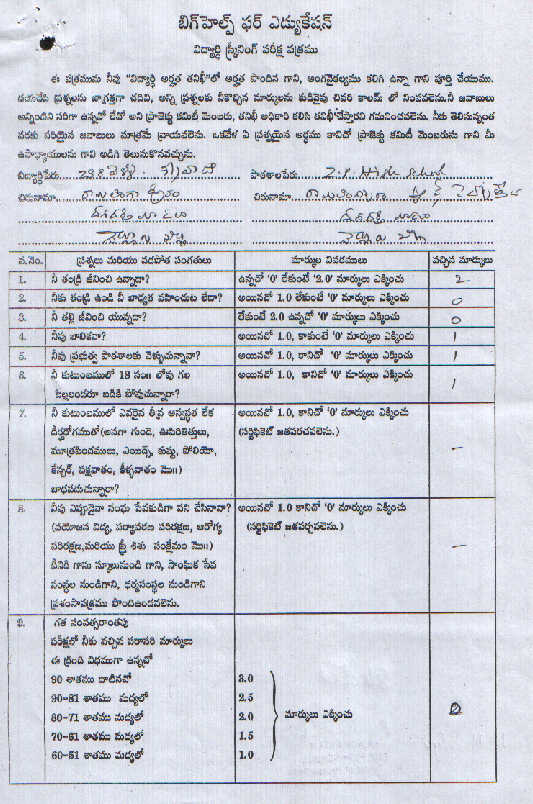 బిగ్‌హెల్ప్ ఫర్ ఎడ్యుకేషన్
విద్యార్ధి స్క్రీనింగ్ పరీక్ష పత్రము
ఈ పత్రమును నీవు "విద్యార్ధి అర్హత తనిఖీ"లో అర్హత పొందిన గాని, అంగవైకల్యము కలిగి ఉన్నా గాని పూర్తి చేయుము.
దయచేసి ప్రశ్నలను జాగ్రత్తగా చదివి, అన్ని ప్రశ్నలకు నీకొచ్చిన మార్కులను కుడివైపు చివరి కాలమ్ లో నింపవలెను.నీ జవాబులు
అన్నియు సరిగా ఉన్నవో లేవో అని ప్రాజెక్టు కమిటీ మెంబరు, తనిఖీ అధికారి కలిసి తనిఖీచేస్తారని గమనించవలెను. నీకు తెలిసున్నంత
వరకు సరియైన జవాబులు మాత్రమే వ్రాయవలెను. ఒకవేళ ఏ ప్రశ్నయైన అర్థము కానిచో ప్రాజెక్టు కమిటీ మెంబరును గాని మీ
ఉపాధ్యాయులను గాని అడిగి తెలుసుకొనవచ్చును.
విద్యార్థిపేరు: పాఠశాలపేరు: Z.P. High School
చిరునామా. చిరునామా.
వ.నెం. ప్రశ్నలు మరియు వడపోత సంగతులు మార్కుల వివరములు వచ్చిన మార్కులు
1. నీ తండ్రి జీవించి ఉన్నాడా? ఉన్నచో '0' లేకుంటే '2.0' మార్కులు ఎక్కించు 2
2. నీకు తండ్రి ఉండి నీ బాధ్యత వహించుట లేదా? అయినచో 1.0 లేకుంటే '0' మార్కులు ఎక్కించు 0
3. నీ తల్లి జీవించి యున్నదా? లేకుంటే 2.0 ఉన్నచో '0' మార్కులు ఎక్కించు 0
4. నీవు బాలికవా? అయినచో 1.0, కాకుంటే '0' మార్కులు ఎక్కించు 1
5. నీవు ప్రభుత్వ పాఠశాలకు వెళ్ళుచున్నావా? అయినచో 1.0, కానిచో '0' మార్కులు ఎక్కించు 1
6. నీ కుటుంబములో 18 సం॥ లోపు గల అయినచో 1.0, కానిచో '0' మార్కులు ఎక్కించు 1
పిల్లలందరూ బడికి పోవుచున్నారా?
7. నీ కుటుంబములో ఎవరైన తీవ్ర అస్వస్థత లేక అయినచో 1.0, కానిచో '0' మార్కులు ఎక్కించు
దీర్ఘరోగముతో(అనగా గుండె, ఊపిరితిత్తులు, (సర్టిఫికెట్ జతపరచవలెను.) –
మూత్రపిండములు, ఎయిడ్స్, కుష్ఠు, పోలియో,
కేన్సర్, పక్షవాతం, కీళ్ళవాతం మొ॥)
బాధపడుచున్నారా?
8. నీవు ఎప్పుడైనా సంఘ సేవకుడిగా పని చేసినావా? అయినచో 1.0 కానిచో '0' మార్కులు ఎక్కించు
(వయోజన విద్య, పర్యావరణ పరిరక్షణ, ఆరోగ్య (సర్టిఫికెట్ జతపర్చవలెను.)
పరిరక్షణ,మరియు స్త్రీ శిశు సంక్షేమం మొ॥) –
దీనికి గాను స్కూలునుండి గాని, సాంఘిక సేవ
సంస్థల నుండిగాని, ధర్మసంస్థల నుండిగాని
ప్రశంసాపత్రము పొందిఉండవలెను.
9. గత సంవత్సరాంతపు
పరీక్షలో నీకు వచ్చిన సరాసరి మార్కులు
ఈ క్రింది విధముగా ఉన్నచో
90 శాతము దాటినచో 3.0
90-81 శాతము మధ్యలో 2.5
80-71 శాతము మధ్యలో 2.0 మార్కులు ఎక్కించు
70-61 శాతము మధ్యలో 1.5
60-51 శాతము మధ్యలో 1.0